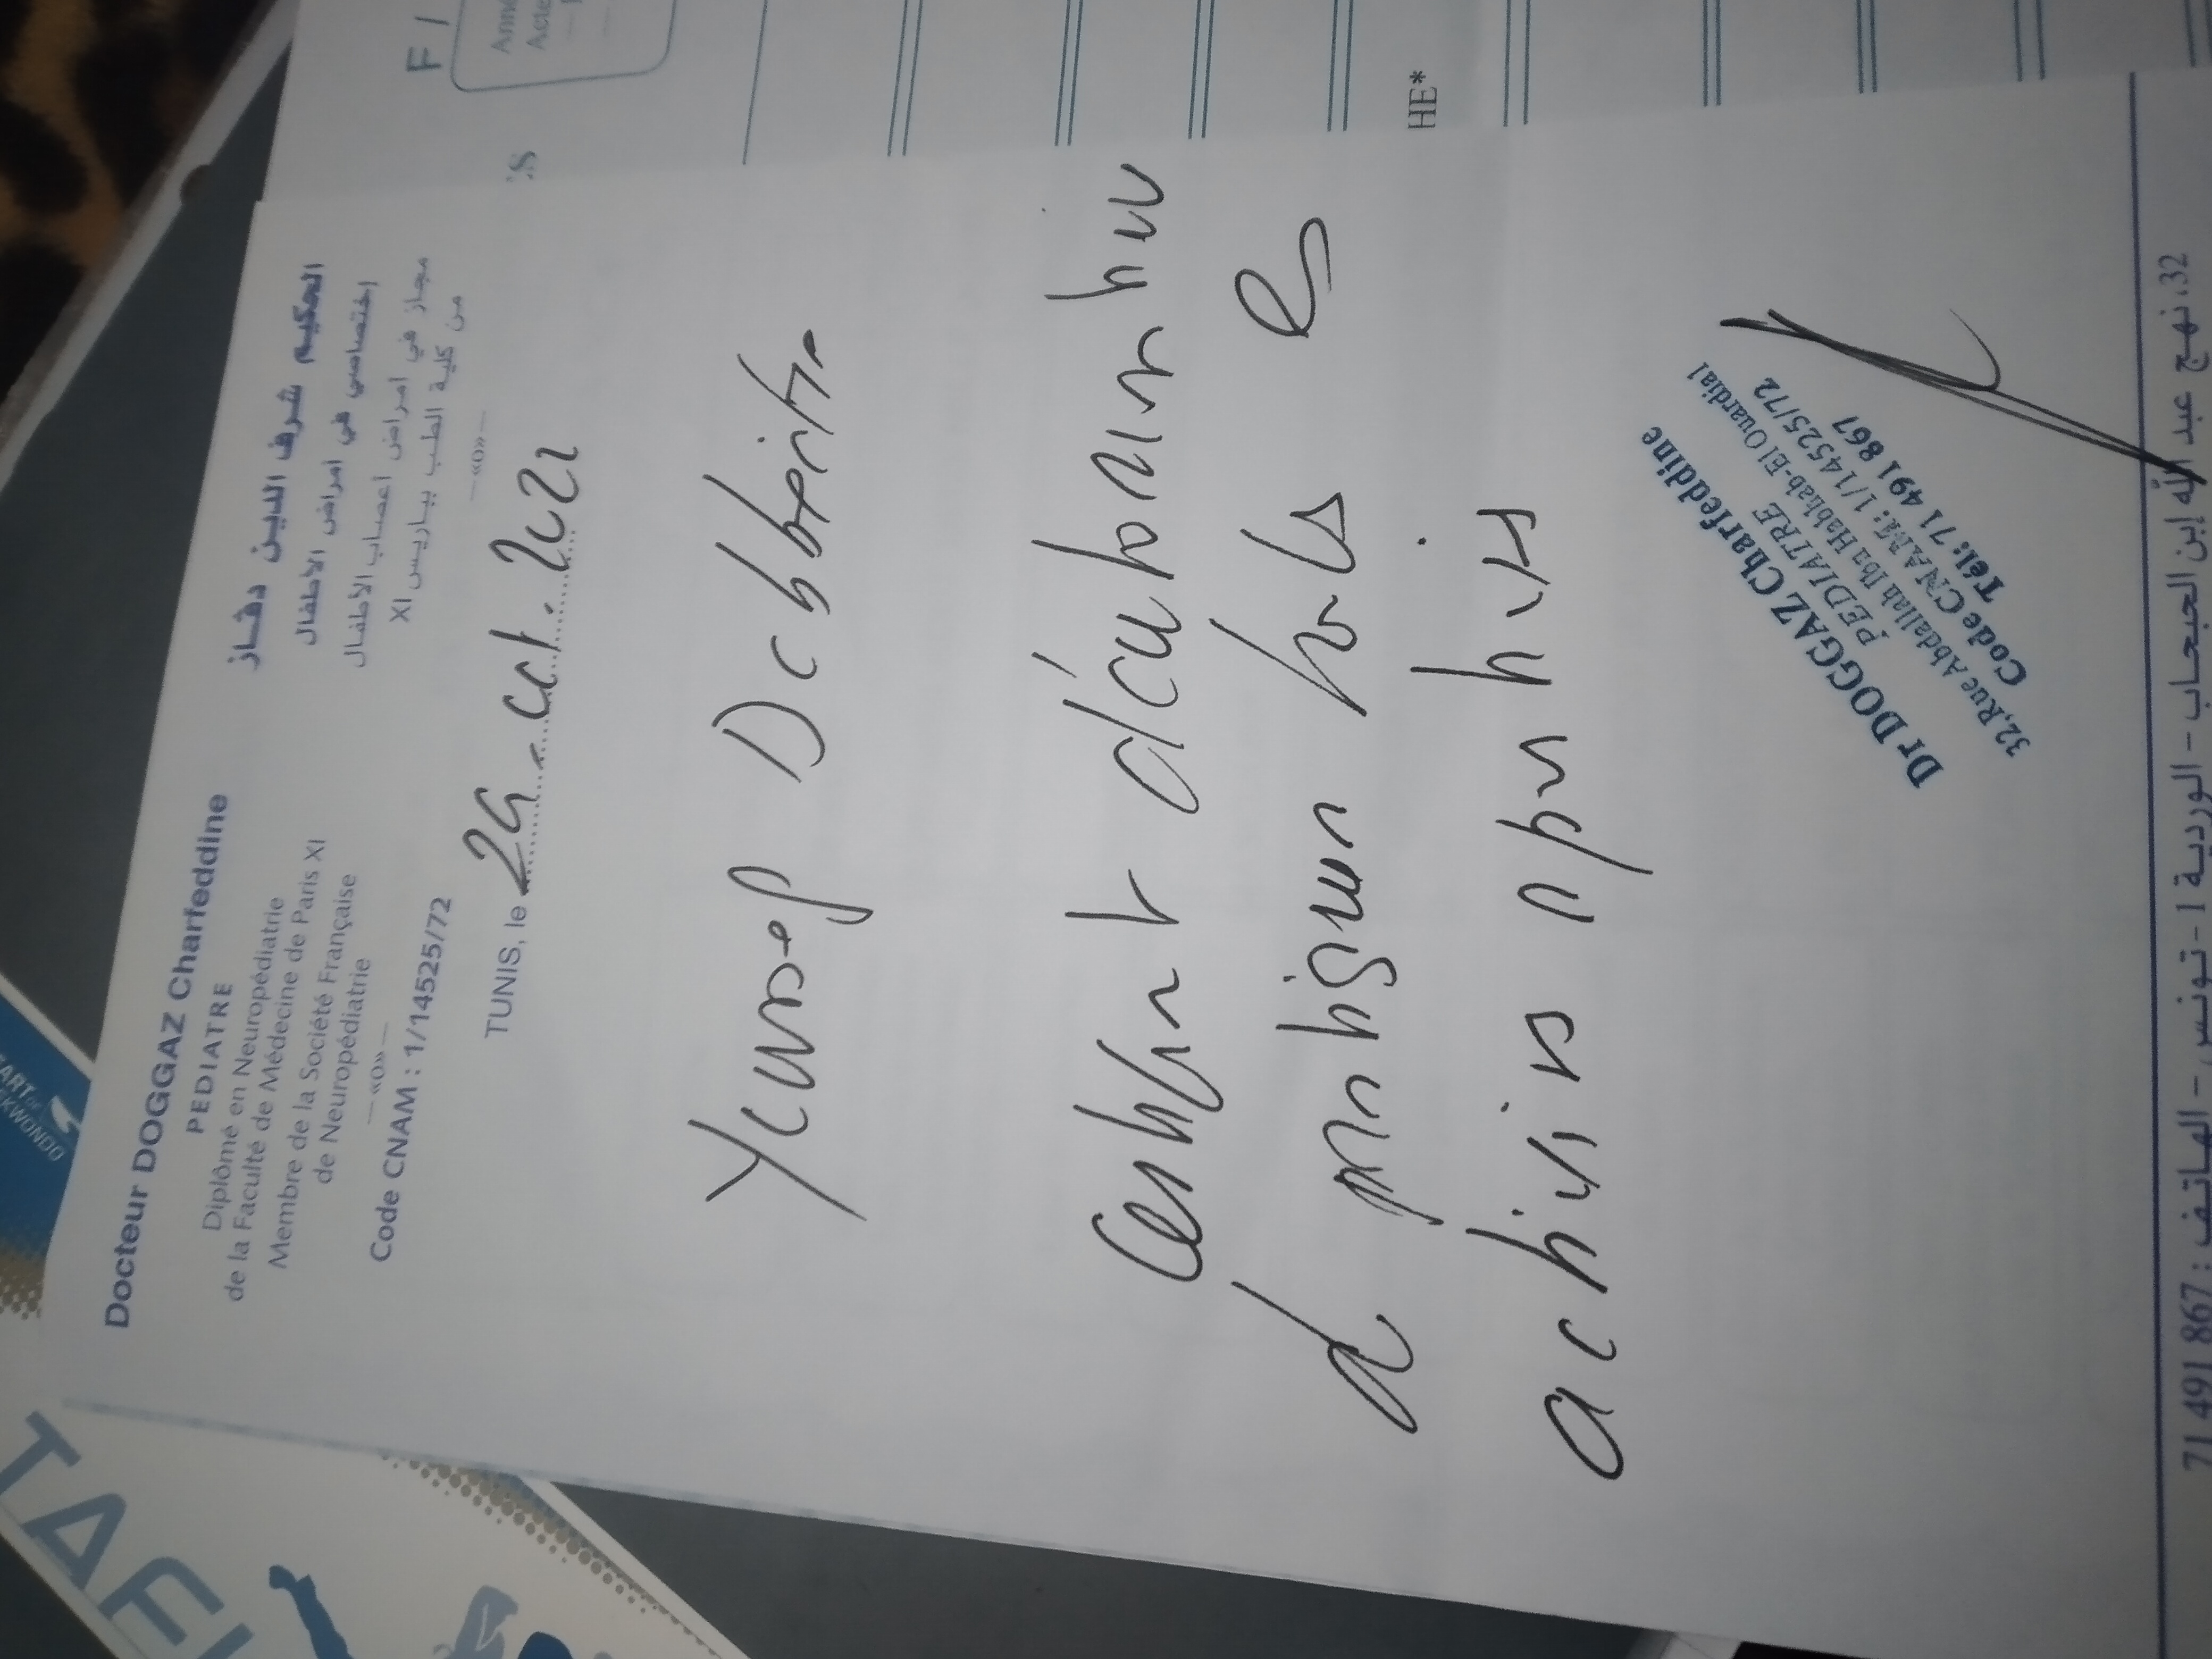 Docteur DOGGAZ Charfeddine
PEDIATRE
Diplômé en Neuropédiatrie
de la Faculté de Médecine de Paris XI
Membre de la Société Française
de Neuropédiatrie
—«o»—
Code CNAM : 1/14525/72
الحكيم شرف الدين دقاز
إختصاصي في امراض الاطفال
مجاز في امراض أعصاب الاطفال
من كلية الطب بباريس XI
—«o»—
TUNIS, le 24 oct. 2021
Youssef
Certificat d'autorisation
de pratiquer toutes les
activités sportives
Dr DOGGAZ Charfeddine
PEDIATRE
32,Rue Abdallah Ibn Habhab-El Ouardia1
Code CNAM: 1/14525/72
Tél: 71 491 867
32، نهج عبد الله إبن الحبحاب - الوردية 1 - تونس - الهاتف : 71 491 867
HE*
F /
TAE
ART OF
EKWONDO